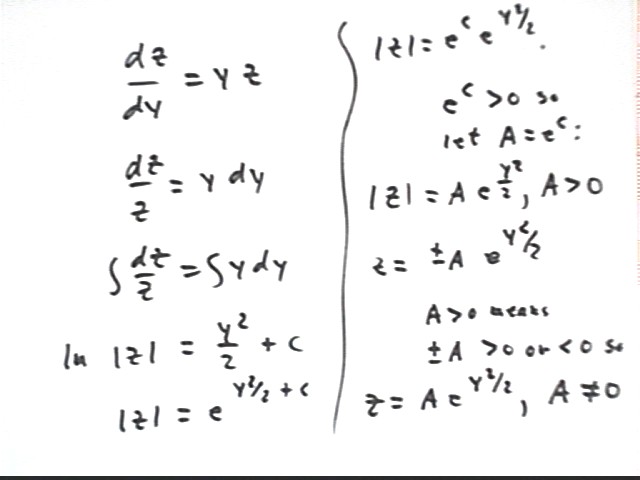 dz/dy = y z
dz/z = y dy
∫ dz/z = ∫ y dy
ln |z| = y²/2 + c
|z| = e^(y²/2 + c)
|z| = e^c e^(y²/2).
e^c > 0 so
let A = e^c:
|z| = A e^(y²/2), A > 0
z = ±A e^(y²/2)
A > 0 means
±A > 0 or < 0 so
z = A e^(y²/2), A ≠ 0